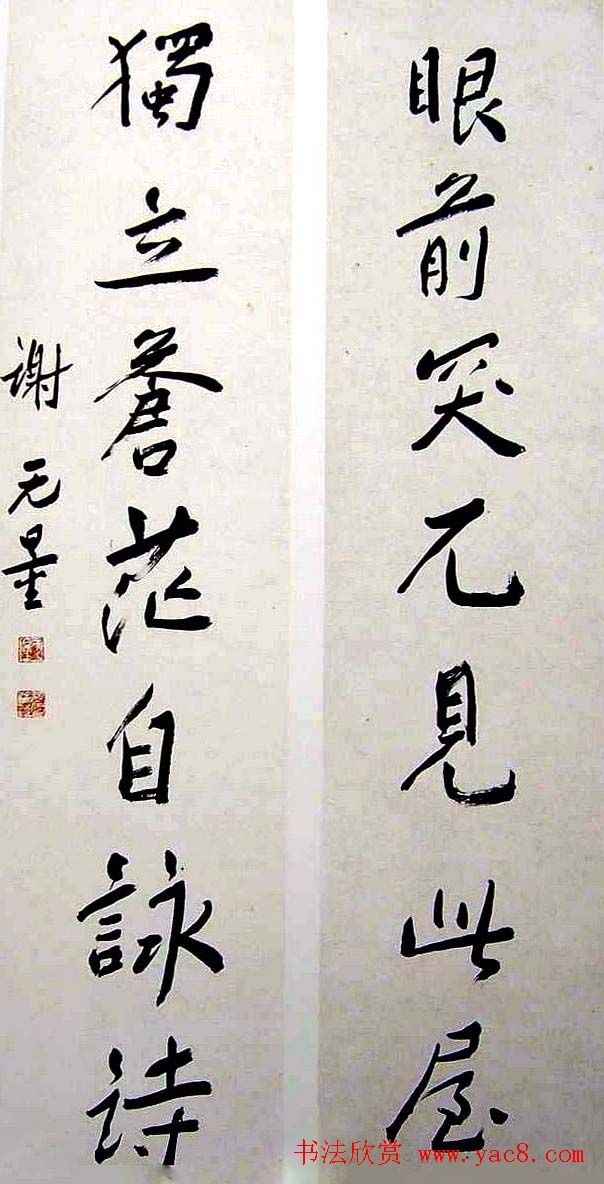 眼前突兀見此屋
獨立蒼茫自詠詩
謝无量
书法欣赏 www.yac8.com